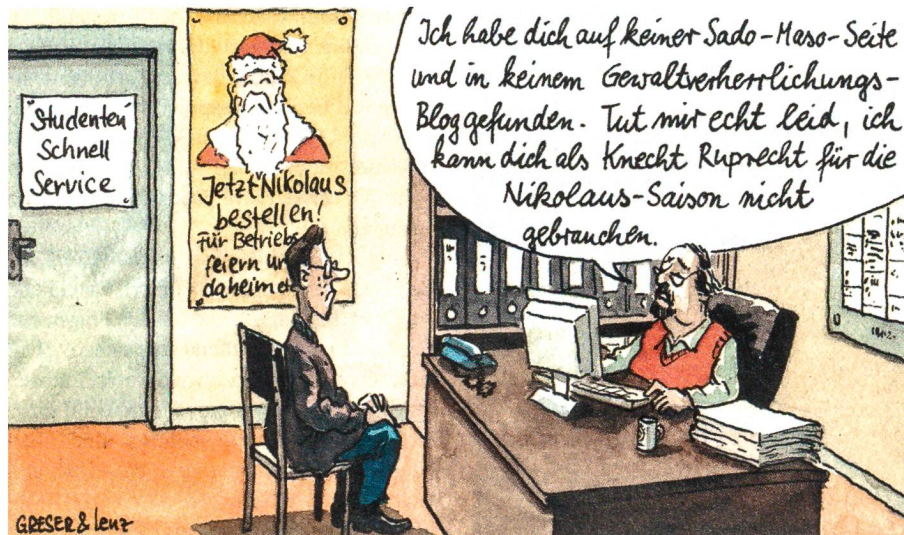 "Studenten
Schnell
Service
Jetzt Nikolaus
bestellen!
Für Betriebs
feiern un
daheim
Ich habe dich auf keiner Sado-Maso-Seite
und in keinem Gewaltverherrlichungs-
Blog gefunden. Tut mir echt leid, ich
kann dich als Knecht Ruprecht für die
Nikolaus-Saison nicht
gebrauchen.
GRESER & Lenz